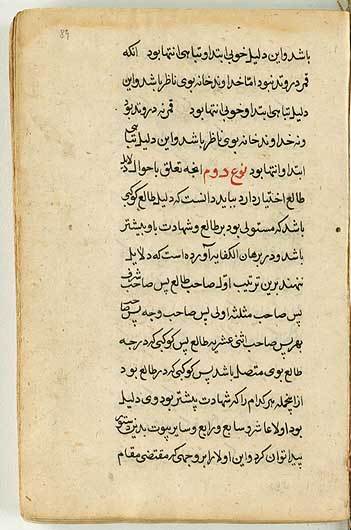 باشد و این دلیل خوبی ابتدا و تباهی انتها بود آنکه
قمر در وتد نبود امّا خداوند خانه بوی ناظر باشد و این
دلیل تباهی ابتدا و خوبی انتها بود قمر نه در وتد بود
و نه خداوند خانه بوی ناظر باشد و این دلیل تباهی
ابتدا و انتها بود نوع دوم آنچه تعلق باحوال دلایل
طالع اختیار دارد بباید دانست که دلیل طالع کوکبی
باشد که مستولی بود بر طالع و شهادت او بیشتر
باشد و در برهان الکفایه آورده است که دلایل
نهند برین ترتیب اوّل صاحب طالع پس صاحب شرف
پس صاحب مثلثه اولی پس صاحب وجه پس صاحب حد
بهر پس صاحب اثنی عشریه طالع پس کوکبی که درجه
طالع بوی متصل باشد پس کوکبی که در طالع بود
از انجمله هر کدام را که شهادت بیشتر بود وی دلیل
بود اولا عاشر و سابع و رابع و سایر بیوت بدین دستور
پیدا توان کرد و این اولا را بر وجهی که مقتضی مقام